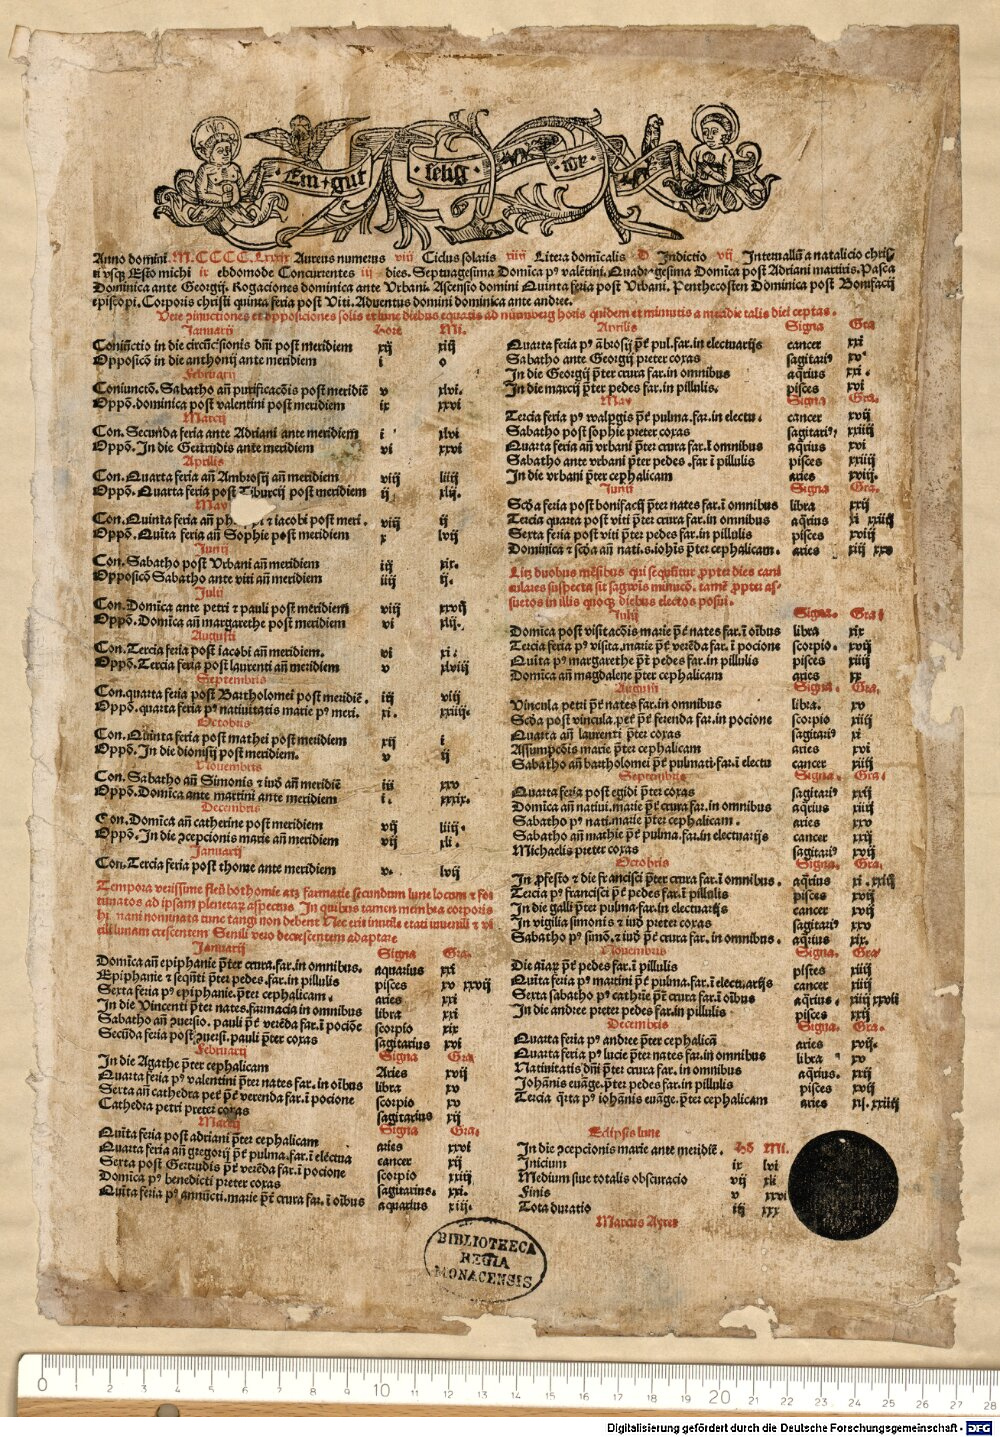 Ein gut selig iar
Anno domini. M.CCCC.Lxxxix Aureus numerus viij Ciclus solaris xiiij Litera domīcalis D Indictio vij Interuallū a natalicio chris
ti vsqȝ Esto michi ix ebdomode Concurentes iij dies. Septuagesima Domīca pꝰ valētini. Quadragesima Domīca post Adriani martiris. Pasca
Dominica ante Georgij. Rogaciones dominica ante Vrbani. Ascensio domini Quinta feria post Vrbani. Penthecosten Dominica post Bonifacij
episcopi. Corporis christi quinta feria post Viti. Aduentus domini dominica ante andree.
Vere ꝯiunctiones et opposiciones solis et lune diebus equatis ad nürmberg horis quidem et minutis a meridie talis diei ceptas.
Januarij Hore Mi.
Coniūctio in die circūcisionis dn̄i post meridiem xij xiij
Opposicō in die anthonij ante meridiem i o
Februarij
Coniunctō. Sabatho an̄ purificacōis post meridiē v xlvi.
Oppō. dominica post valentini post meridiem ix xxvi
Marcij
Con. Secunda feria ante Adriani ante meridiem i xlvi
Oppō. In die Gertrudis ante meridiem vi xxvi
Aprilis
Con. Quarta feria an̄ Ambrosij an̄ meridiem viij liiij
Oppō. Quarta feria post Tiburcij post meridiem ij xlij.
May
Con. Quinta feria an̄ iacobi post meri. viij ij
Oppō. Quīta feria an̄ Sophie post meridiem x lvij
Junij
Con. Sabatho post Vrbani an̄ meridiem iij xix.
Opposicō Sabatho ante viti an̄ meridiem iiij ij.
Julij
Con. Domīca ante petri ⁊ pauli post meridiem viij xxvij
Oppō. Domīca an̄ margarethe post meridiem vi xlij.
Augusti
Con. Tercia feria post iacobi an̄ meridiem. vi xi.
Oppō. Tercia feria post laurenti an̄ meridiem v xlviij
Septembris
Con. quarta feria post Bartholomei post meridiē. iij vlij
Oppō. quarta feria pꝰ natiuitatis marie pꝰ meri. xi. xxiij.
Octobris
Con. Quinta feria post mathei post meridiem xij i
Oppō. In die dionisij post meridiem. v ij
Nouembris
Con. Sabatho an̄ Simonis ⁊ iud an̄ meridiē iij xxv
Oppō. Domīca ante martini ante meridiem i. xxxix.
Decembris
Con. Domīca an̄ catherine post meridiem vij liiij.
Oppō. In die ꝯcepcionis marie an̄ meridiem vij xli.
Januarij
Con. Tercia feria post thome ante meridiem v. lvij
Tempora verissime fleubothomie atqȝ farmatie secundum lune locum ⁊ for
tunatos ad ipsam planetarū aspectus. In quibus tamen membra corporis
hi nani nominata tunc tangi non debent Nec erit inutile etati iuuenili ⁊ vi
rili lunam crescentem Senili vero decrescentem adaptare
Januarij Signa Gra.
Domīca an̄ epiphanie p̄ter crura. far. in omnibus. aquarius xxi
Epiphanie ⁊ seqn̄ti p̄ter pedes. far. in pillulis pisces xv xxvij
Sexta feria pꝰ epiphanie. p̄ter cephalicam. aries xxi
In die Vincenti p̄ter nates. farmacia in omnibus libra xxi
Sabatho an̄ ꝯuersio. pauli p̄t verēda far. ī pociōe scorpio xix
Secūda feria post ꝯuersi. pauli p̄ter coxas sagitarius xvi
Februarij Signa Gra
In die Agathe p̄ter cephalicam Aries xvij
Quarta feria pꝰ valentini p̄ter nates far. in oībus libra xv
Sexta an̄ cathedra pet p̄t verenda far. ī pocione scorpio xv
Cathedra petri preter coxas sagitarius xij
Marcij Signa Gra.
Quīta feria post adriani p̄ter cephalicam aries xxvi
Quarta feria an̄ gregorij p̄t pulma. far. ī electua cancer xij
Sexta post Gertrudis p̄t verēda far. ī pocione scorpio xiiij
Domīca pꝰ benedicti preter coxas sagitarius. xxi.
Quīta feria pꝰ annūcti. marie p̄t crura far. ī oībus aquarius xiij.
Aprilis Signa Gra
Quarta feria pꝰ ābrosij p̄t pul. far. in electuarijs cancer xxi
Sabatho ante Georgij preter coxas sagitariꝰ xv
In die Georgij p̄ter crura far. in omnibus aqrius xxi.
In die marcij p̄ter pedes far. in pillulis. pisces xvi
May Signa Gra.
Tercia feria pꝰ walpgis p̄t pulma. far. in electu. cancer xvij
Sabatho post sophie preter coxas sagitariꝰ xxiiij
Quarta feria an̄ vrbani p̄ter crura far. ī omnibus aqrius xvi
Sabatho ante vrbani p̄ter pedes. far ī pillulis pisces xxiij
In die vrbani p̄ter cephalicam aries xviij.
Junij Signa Gra.
Scd̄a feria post bonifacij p̄ter nates far. ī omnibus libra xxij
Tercia quarta post viti p̄ter crura far. in omnibus aqrius xi xxiij
Sexta feria post viti p̄ter pedes far. in pillulis pisces xviij
Dominica ⁊ scd̄a an̄ nati. s. iohīs p̄ter cephalicam. aries xiij xxv
Licȝ duobus mēsibus qui sequūtur ꝓpter dies cani
culares suspecta sit sagwis minucō. tamē ꝓpter as/
suetos in illis quoqȝ diebus electos posui.
Julij Signa. Gra
Domīca post visitacōis marie p̄t nates far. ī oībus libra xix
Tercia feria pꝰ visita. marie p̄t verēda far. ī pocione scorpio. xvij
Quīta pꝰ margarethe p̄t pedes far. in pillulis pisces xiiij
Domīca an̄ magdalene p̄ter cephalicam aries xx
Augusti Signa. Gra.
Vincula petri p̄t nates far. in omnibus libra. xv
Scd̄a post vincula. pet p̄t ferenda far. in pocione scorpio xiiij
Quarta an̄ laurenti p̄ter coxas sagitariꝰ xi
Assumpcōis marie p̄ter cephalicam aries xvi
Sabatho an̄ bartholomei p̄t pulmati. far. ī electu cancer xiij
Septembris Signa. Gra.
Quarta feria post egidi p̄ter coxas sagitariꝰ xxij
Domīca an̄ natiui. marie p̄t crura far. in omnibus aqrius xiiij
Sabatho pꝰ nati. marie p̄ter cephalicam. aries xxv
Sabatho an̄ mathie p̄t pulma. far. in electuarijs cancer xxij
Michaelis preter coxas sagitariꝰ xvij
Octobris Signa. Gra.
In ꝓfesto ⁊ die francisci p̄ter crura far. ī omnibus. aqrius xi. xxiij
Tercia pꝰ francisci p̄t pedes far. ī pillulis pisces xvij
In die galli p̄ter pulma far. in electuarijs cancer xvij
In vigilia simonis ⁊ iud preter coxas sagitariꝰ xxv
Sabatho pꝰ simō. ⁊ iud p̄t crura far. in omnibus. aqrius xix.
Nouembris Signa. Gra
Die aīarꝝ p̄t pedes far. ī pillulis pisces xiiij
Quīta feria pꝰ martini p̄t pulma. far. ī electuarijs cancer xiij
Sexta sabatho pꝰ cathrīe p̄t crura far. ī oībus aqrius. xiij xxvij
In die andree preter pedes far. in pillulis pisces xxij
Decembris Signa. Gra.
Quarta feria pꝰ andree p̄ter cephalicā aries xvij.
Quarta feria pꝰ lucie p̄ter nates far. in omnibus libra xv
Natiuitatis dn̄i p̄ter crura far. in omnibus aqrius. xxij
Johānis euāge. p̄ter pedes far. in pillulis pisces xvij
Tercia qrta pꝰ iohānis euāge. p̄ter cephalicam aries xij. xxiiij
Eclipsis lune
In die ꝯcepcionis marie ante meridiē. Ho Mi.
Inicium ix lvi
Medium siue totalis obscuracio vij xli
Finis v xxvi
Tota duratio iij xxx
Marcus Ayrer
BIBLIOTHECA
REGIA
MONACENSIS
0 1 2 3 4 5 6 7 8 9 10 11 12 13 14 15 16 17 18 19 20 21 22 23 24 25 26 27 28
Digitalisierung gefördert durch die Deutsche Forschungsgemeinschaft - DFG